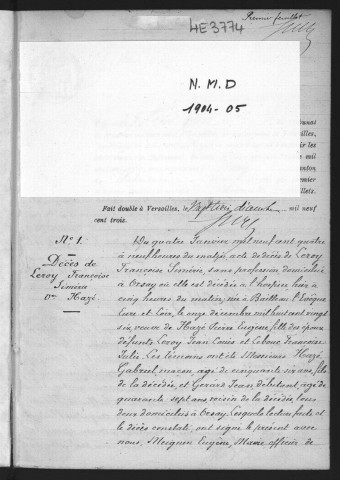 Premier feuillet
4E3774
N.M.D
1904-05
Fait double à Versailles, le Vingt six décembre mil neuf
cent trois.
N° 1.
Décès de
Leroy Françoise
Vve Hazé
Du quatre Janvier mil neuf cent quatre
à neuf heures du matin, acte de décès de Leroy
Françoise, sans profession, domiciliée
à Orsay où elle est décédée à l'hospice hier à
cinq heures du matin, née à Bailleau l'Evêque
Eure et Loir, le onze décembre mil huit cent vingt
six, veuve de Hazé Pierre Eugène, fille des époux
défunts Leroy Jean Louis et Françoise
Julie. Les témoins ont été Messieurs Hazé
Gabriel, maçon, âgé de cinquante six ans, fils
de la décédée, et Jean, débitant, âgé de
quarante sept ans, voisin de la décédée, tous
deux domiciliés à Orsay, lesquels lecture faite et
le décès constaté, ont signé le présent avec
nous, Meignen Eugène, Maire officier de